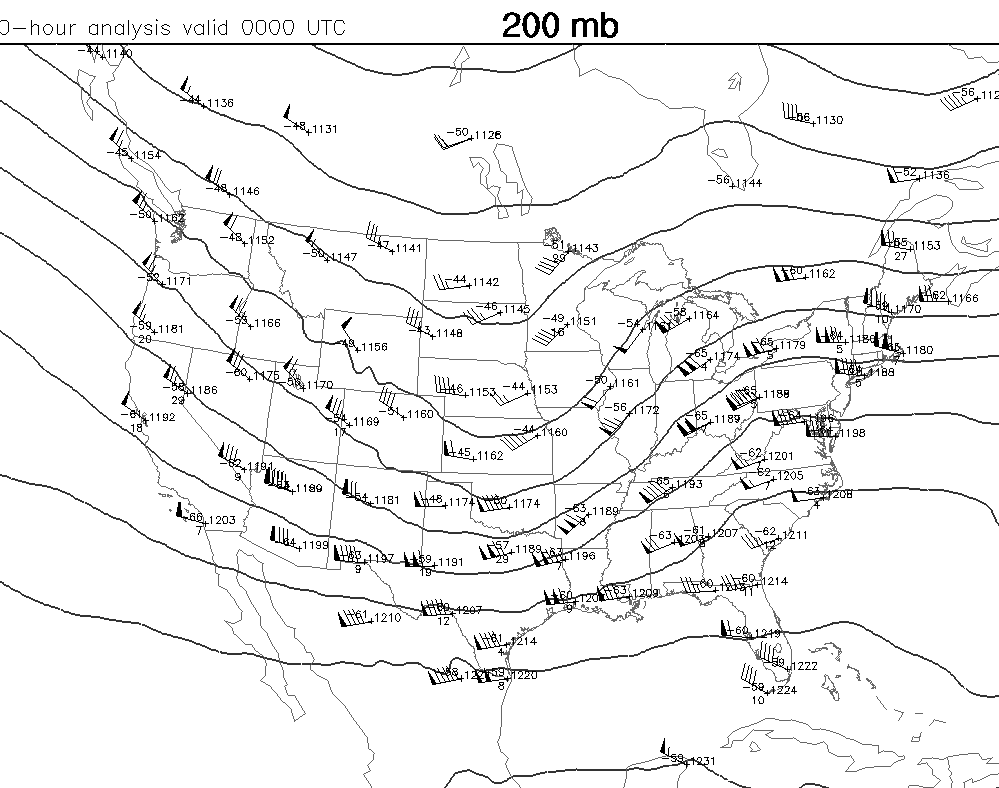 0-hour analysis valid 0000 UTC
200 mb
-44 1140
-44 1136
-48 1131
-50 1128
-56 1130
-56
-45 1154
-48 1146
-56 1144
-52 1136
-50 1162
-48 1152
-50 1147
-47 1141
-51 1143
29
-55 1153
27
-52 1171
-44 1142
-60 1162
-62 1166
-59 1181
20
-53 1166
-46 1145
-43 1148
-49 1151
16
-54
-58 1164
1170
-49 1156
-65 1174
4
-65 1179
5
5
1180
-60 1175
1170
-58 1186
29
-46 1153
-44 1153
-50 1161
1188
5
-61 1192
18
-54 1169
17
-51 1160
-56 1172
-65 1189
7
1188
1198
-44 1160
-62 1191
9
-45 1162
-62 1201
1189
-54 1181
-48 1174
1174
1193
-62 1205
7
-66 1203
7
-53 1189
-63 1208
4
1199
-63 1197
9
-59 1191
19
-57 1189
29
1196
7
-63
-61 1207
-62 1211
-61 1210
-60 1207
12
-60
9
-53 1209
-60
-60 1214
11
-61 1214
4
-60 1219
-59 1220
8
-59 1222
-58 1224
10
-59 1231